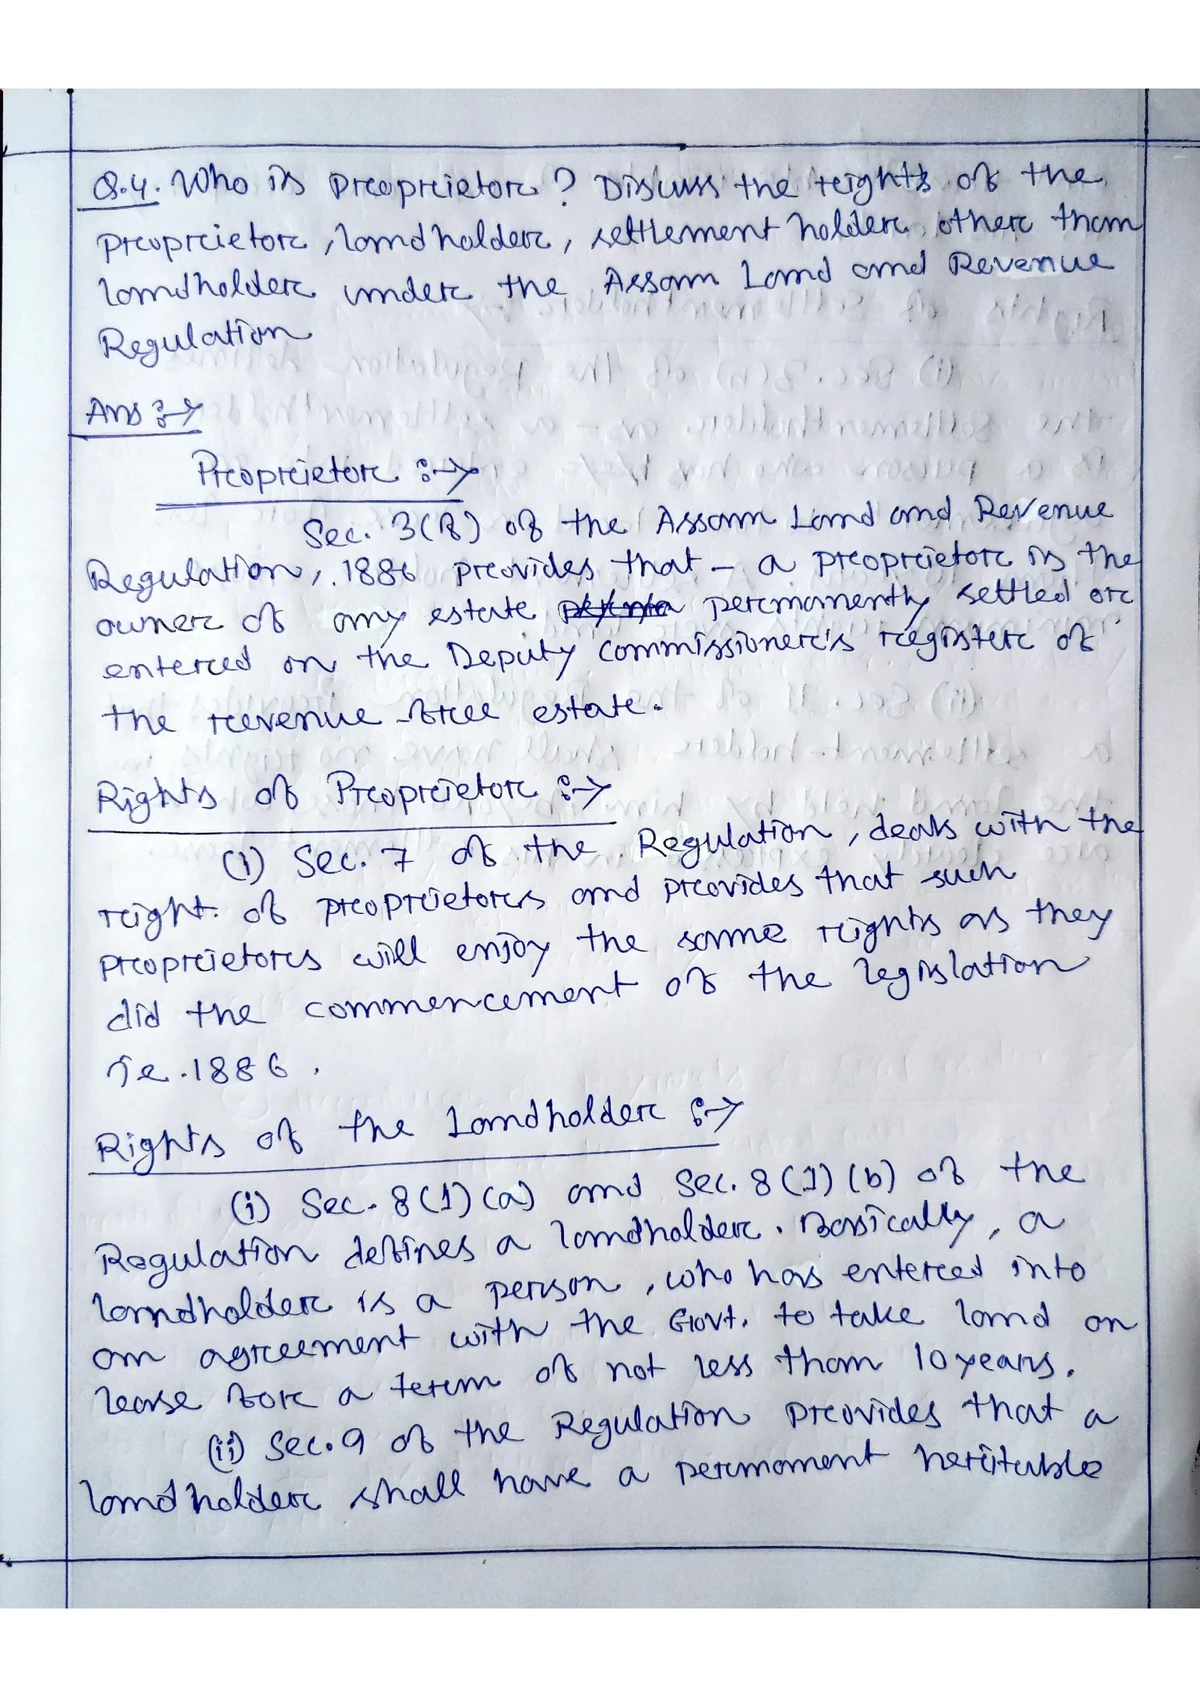 Q.4. Who is Proprietor? Discuss the rights of the
proprietor, landholder, settlement holder other than
landholder under the Assam Land and Revenue
Regulation
Ans :-→
Proprietor :-→
Sec. 3(8) of the Assam Land and Revenue
Regulation, 1886 provides that - a proprietor is the
owner of any estate permanently settled or
entered on the Deputy Commissioner's register of
the revenue-free estate.
Rights of Proprietor :-→
(i) Sec. 7 of the Regulation, deals with the
right of proprietors and provides that such
proprietors will enjoy the same rights as they
did the commencement of the legislation
ie. 1886.
Rights of the Landholder :-→
(i) Sec. 8(1)(a) and Sec. 8(1)(b) of the
Regulation defines a landholder. Basically, a
landholder is a person, who has entered into
an agreement with the Govt. to take land on
lease for a term of not less than 10 years.
(ii) Sec. 9 of the Regulation provides that a
landholder shall have a permanent heritable